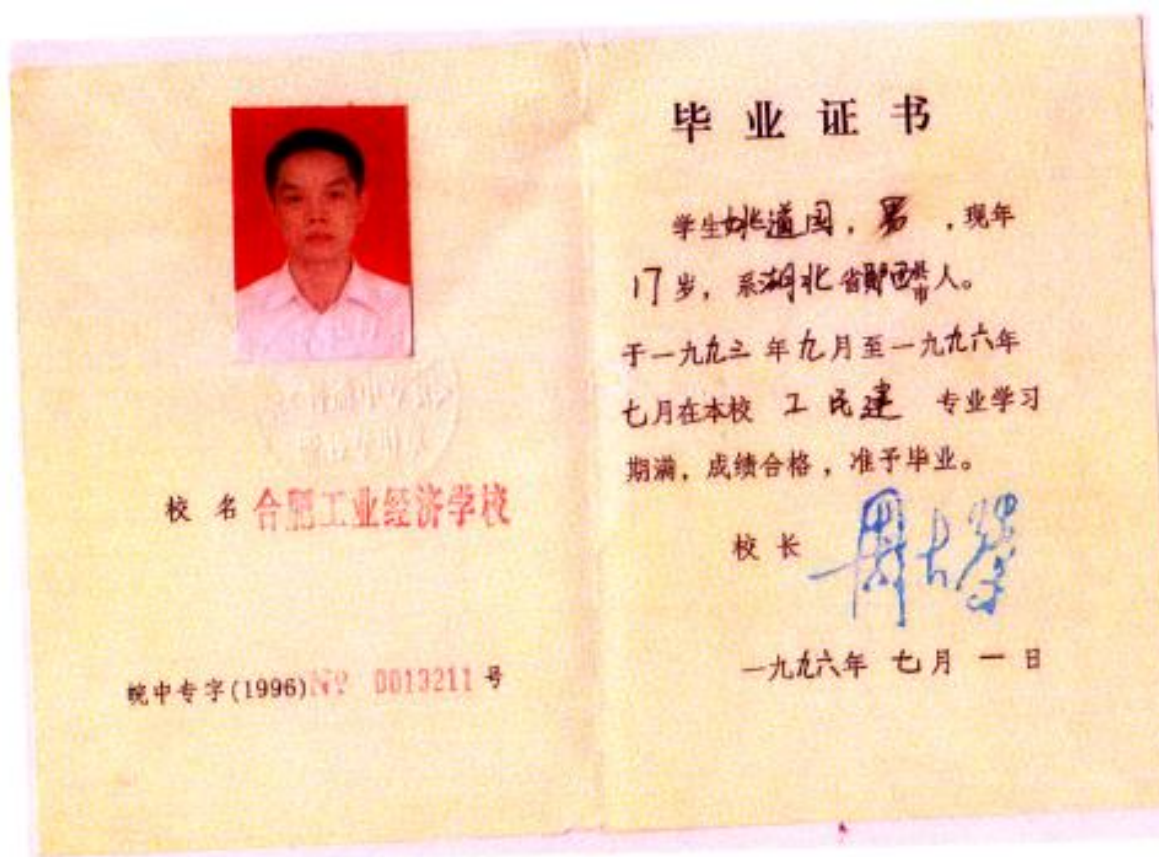 校名 合肥工业经济学校
皖中专字(1996)Nº 0013211 号
毕业证书
学生姚道国，男，现年
17岁，系湖北省郧西县市人。
于一九九三年九月至一九九六年
七月在本校 工民建 专业学习
期满，成绩合格，准予毕业。
校长
一九九六年 七月 一日